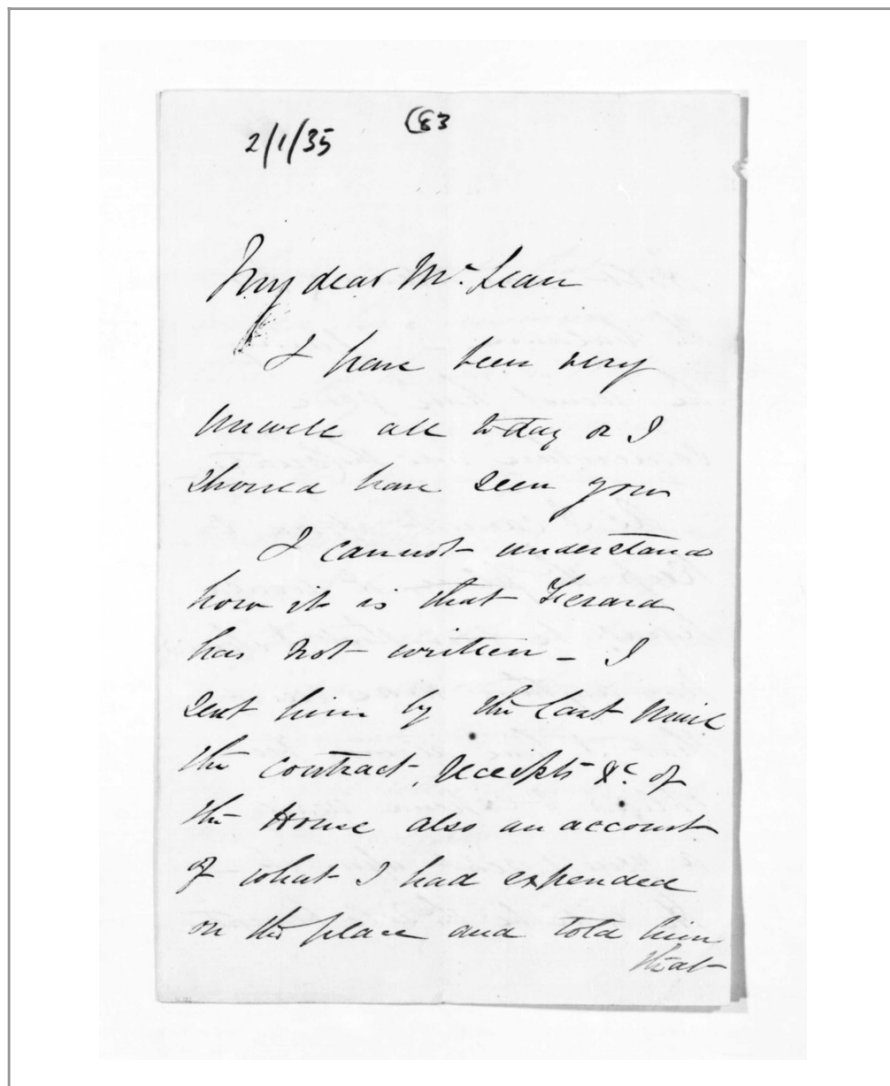 2/1/35
(83
My dear Mr. Lean
I have been very
unwell all today or I
should have seen you
I cannot understand
how it is that Gerard
has not written - I
sent him by the last mail
the contract, receipts &c. of
the House also an account
of what I had expended
on the place and told him
that